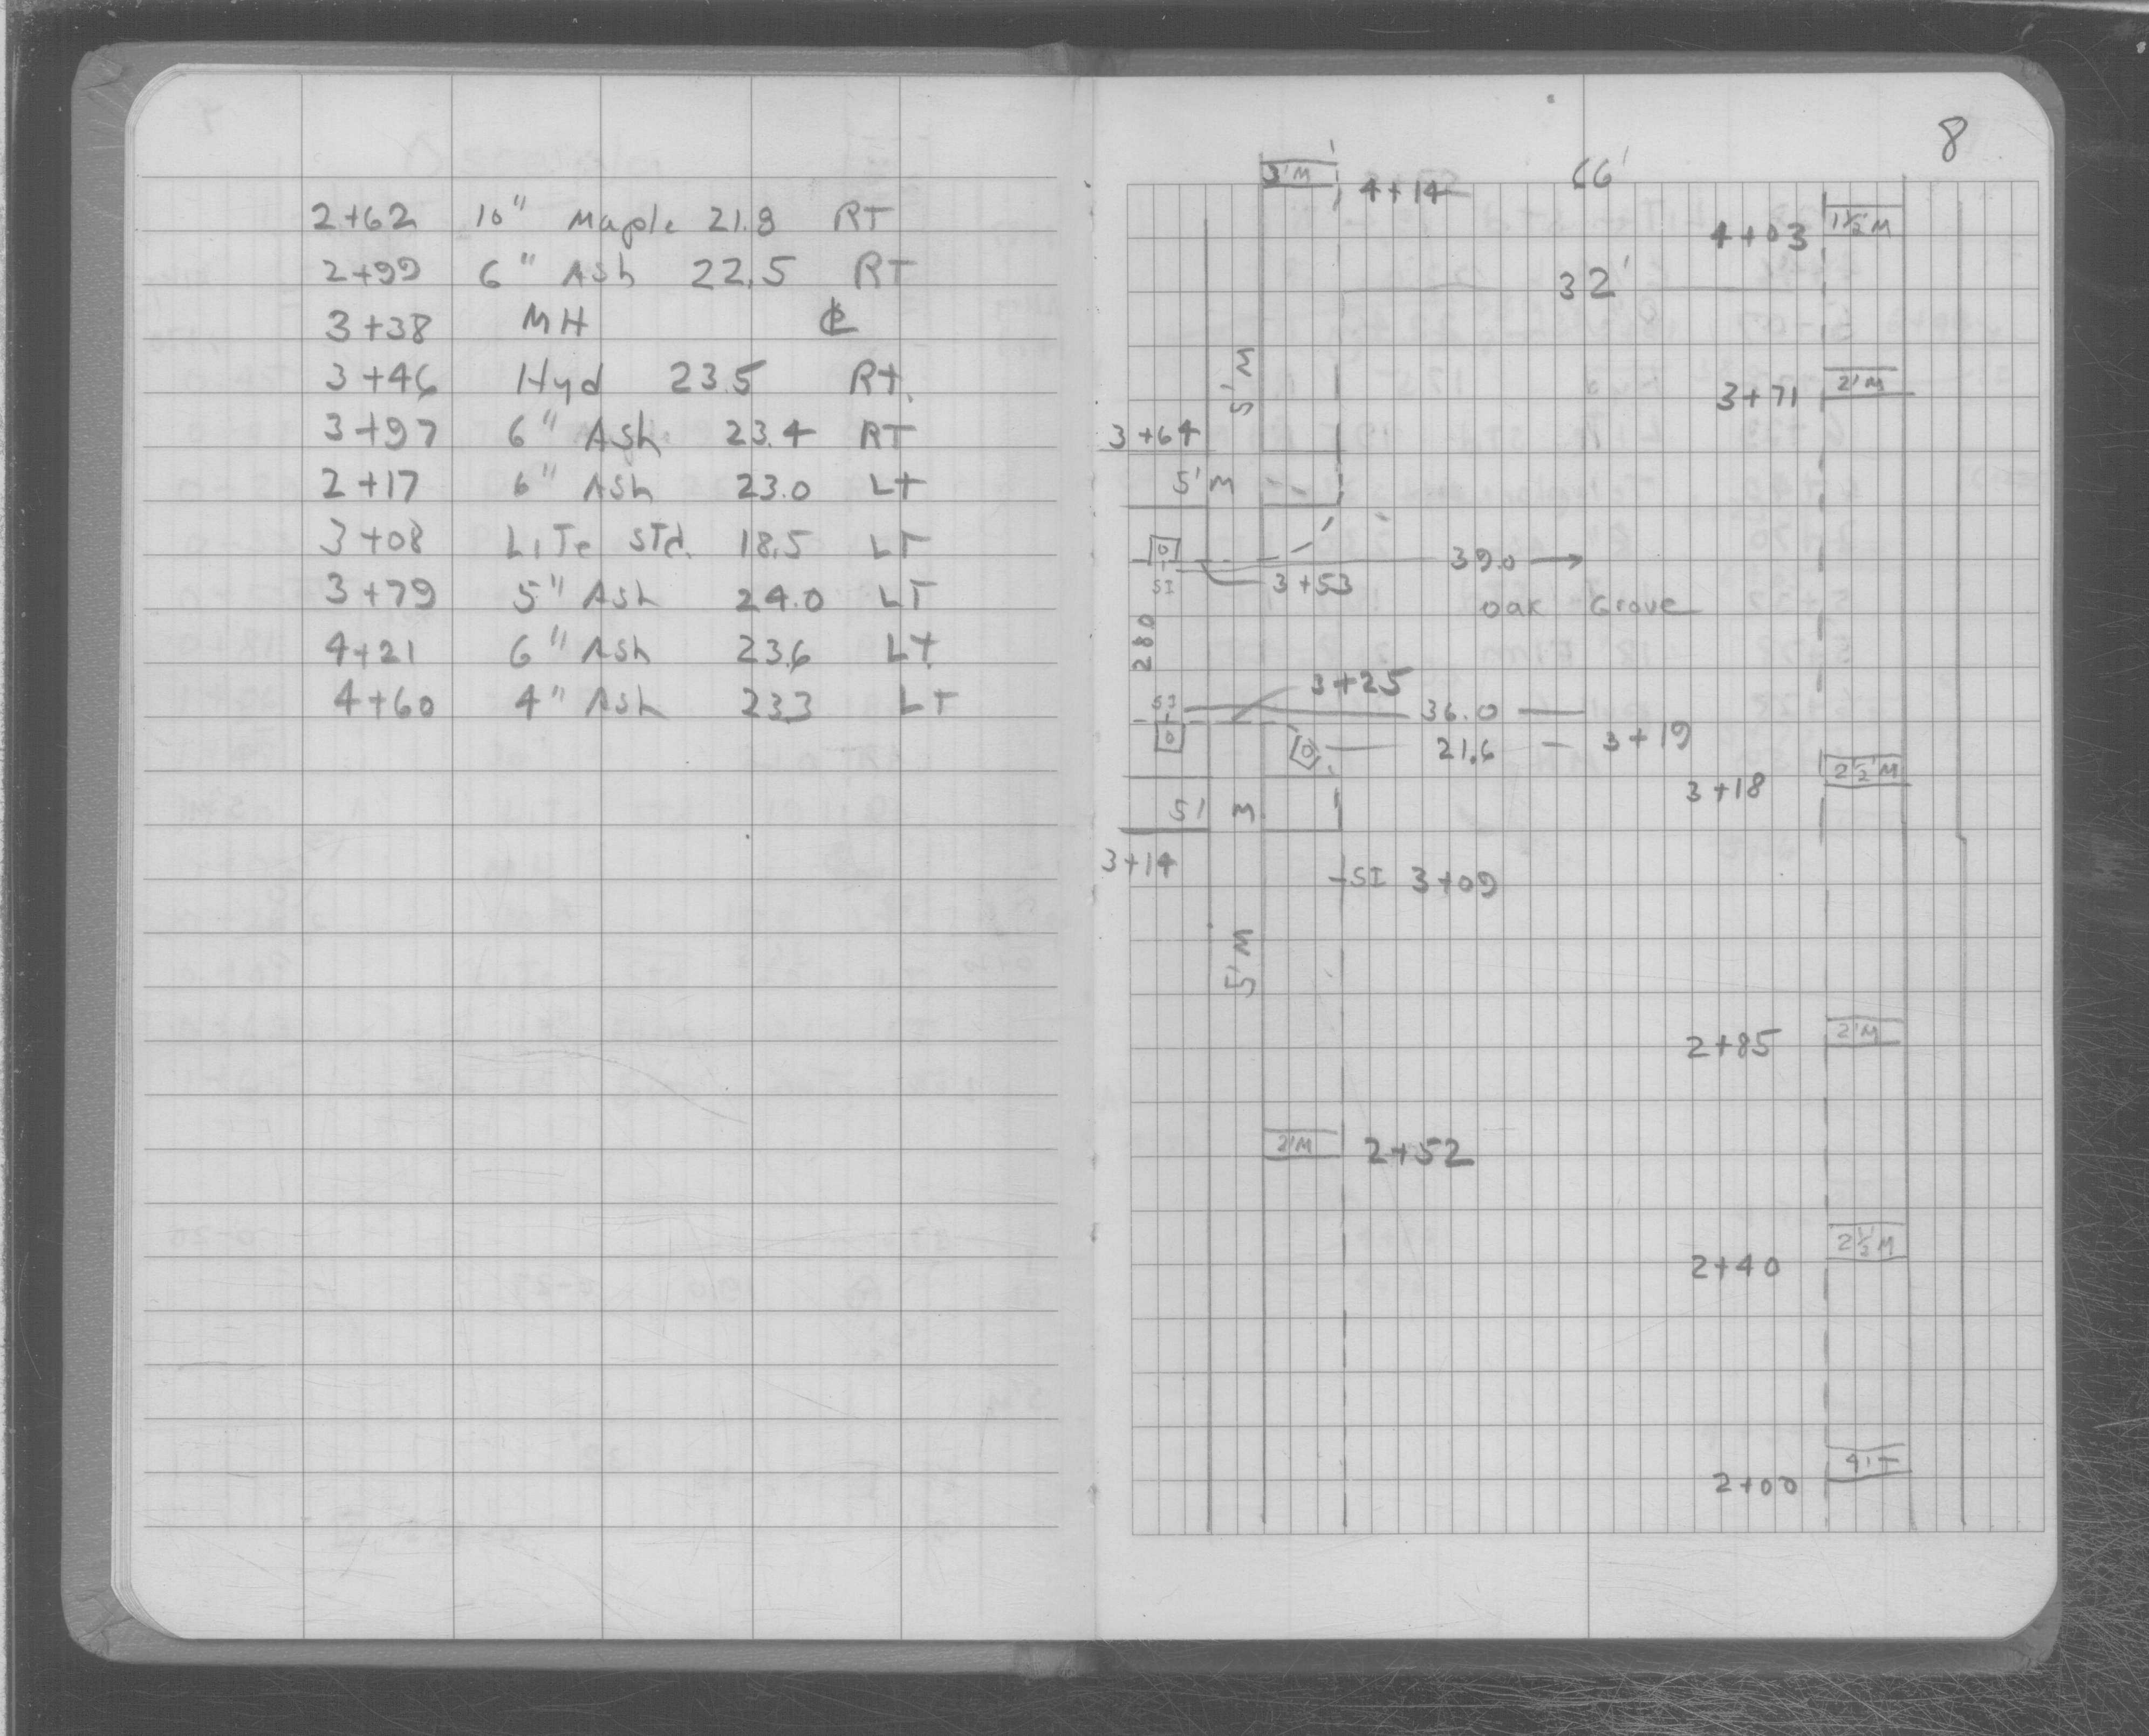 2+62 10" Maple 21.8 RT
2+99 6" Ash 22.5 RT
3+38 MH ℄
3+46 Hyd 23.5 RT.
3+97 6" Ash 23.4 RT
2+17 6" Ash 23.0 LT
3+08 LiTe STd. 18.5 LT
3+79 5" Ash 24.0 LT
4+21 6" Ash 23.6 LT.
4+60 4" Ash 23.3 LT
8
3'M 4+14 66'
4+03 1½'M
32'
5'M
3+71 2'M
3+64
5'M
39.0
SI 3+53
Oak Grove
280
3+25
SI 36.0
21.6 - 3+19
3+18 2½'M
5' M
3+14
SI 3+09
5'M
2+85 2'M
2'M 2+52
2½'M
2+40
2+00